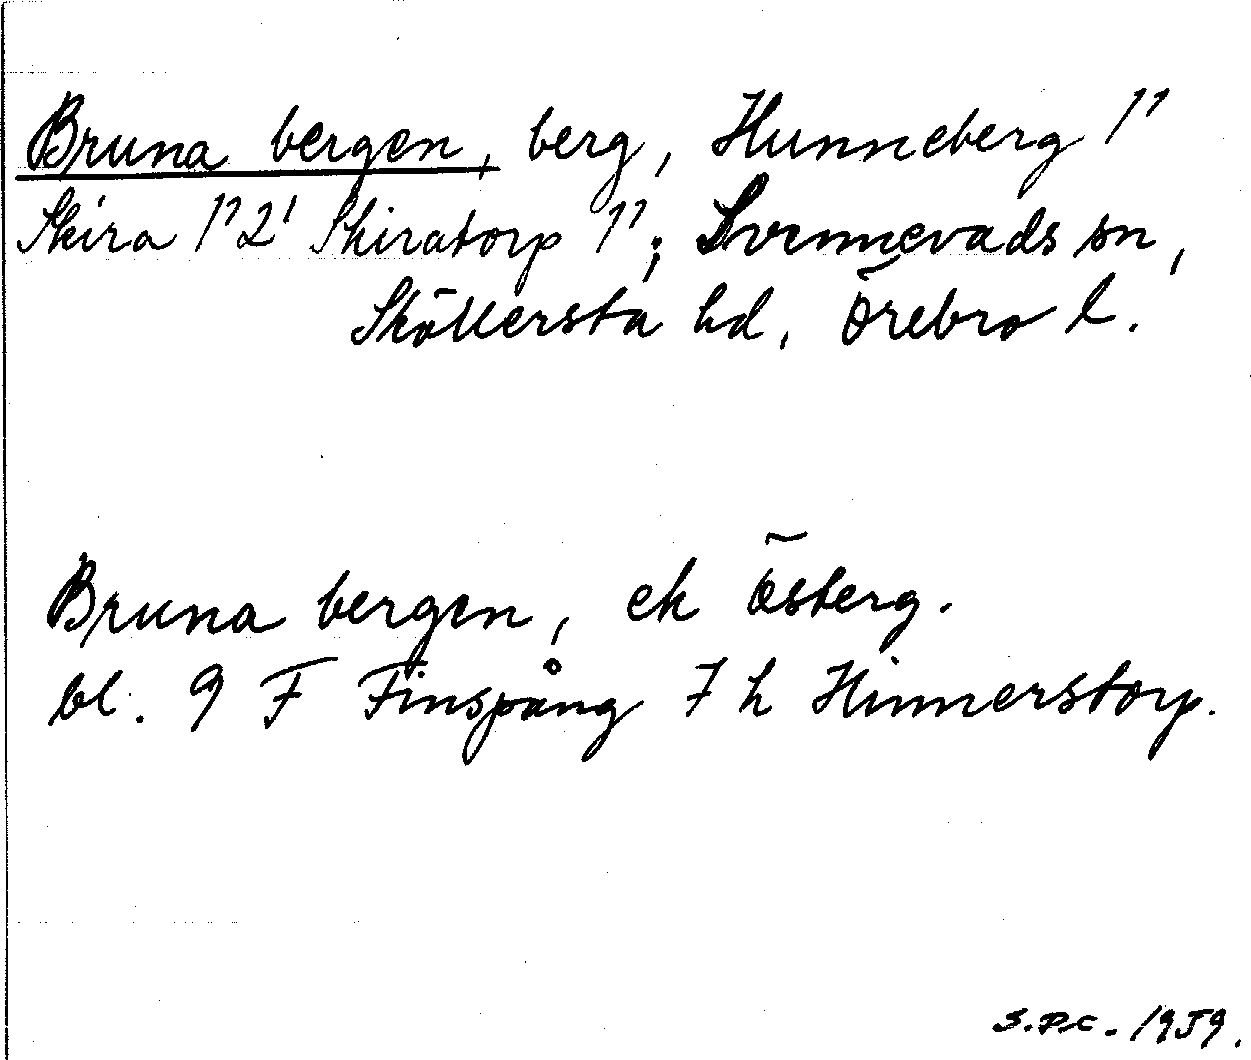 Bruna bergen, berg, Hunneberg 1¹
Skira 1¹ 2¹ Skiratorp 1¹; Svennevads sn,
Sköllersta hd, Örebro l.
Bruna bergen, ek Österg.
bl. 9 F Finspång 7 h Hinnerstorp.
S.P.C. - 1959.